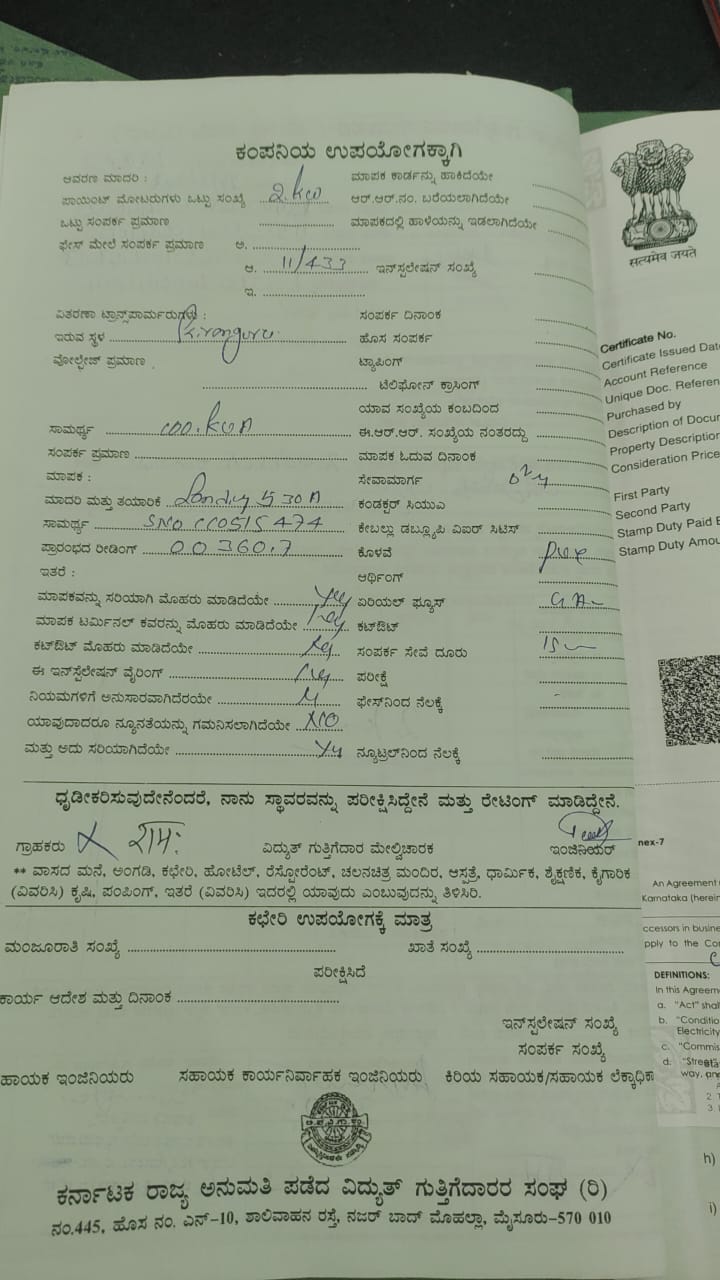 ಕಂಪನಿಯ ಉಪಯೋಗಕ್ಕಾಗಿ
ಆವರಣ ಮಾದರಿ : ಮಾಪಕ ಕಾರ್ಡನ್ನು ಹಾಕಿದೆಯೇ
ಪಾಯಿಂಟ್ ಮೋಟರುಗಳು ಒಟ್ಟು ಸಂಖ್ಯೆ 2.kw ಆರ್.ಆರ್.ನಂ. ಬರೆಯಲಾಗಿದೆಯೇ
ಒಟ್ಟು ಸಂಪರ್ಕ ಪ್ರಮಾಣ ಮಾಪಕದಲ್ಲಿ ಹಾಳೆಯನ್ನು ಇಡಲಾಗಿದೆಯೇ
ಫೇಸ್ ಮೇಲೆ ಸಂಪರ್ಕ ಪ್ರಮಾಣ ಅ.
ಆ. 11/433 ಇನ್‌ಸ್ಟಲೇಷನ್ ಸಂಖ್ಯೆ
ಇ.
ವಿತರಣಾ ಟ್ರಾನ್ಸ್‌ಪಾರ್ಮರುಗಳು : ಸಂಪರ್ಕ ದಿನಾಂಕ
ಇರುವ ಸ್ಥಳ Kiranguru ಹೊಸ ಸಂಪರ್ಕ
ವೋಲ್ಟೇಜ್ ಪ್ರಮಾಣ ಟ್ಯಾಪಿಂಗ್
ಟೆಲಿಫೋನ್ ಕ್ರಾಸಿಂಗ್
ಯಾವ ಸಂಖ್ಯೆಯ ಕಂಬದಿಂದ
ಸಾಮರ್ಥ್ಯ 100.kVA ಈ.ಆರ್.ಆರ್. ಸಂಖ್ಯೆಯ ನಂತರದ್ದು
ಸಂಪರ್ಕ ಪ್ರಮಾಣ ಮಾಪಕ ಓದುವ ದಿನಾಂಕ
ಮಾಪಕ : ಸೇವಾಮಾರ್ಗ
ಮಾದರಿ ಮತ್ತು ತಯಾರಿಕೆ 5 30A ಕಂಡಕ್ಟರ್ ಸಿಯುಎ
ಸಾಮರ್ಥ್ಯ SNO CC0515474 ಕೇಬಲ್ಲು ಡಬ್ಲ್ಯೂಪಿ ವಿಐರ್ ಸಿಟಿಸ್
ಪ್ರಾರಂಭದ ರೀಡಿಂಗ್ 00360.7 ಕೊಳವೆ
ಇತರೆ : ಆರ್ಥಿಂಗ್
ಮಾಪಕವನ್ನು ಸರಿಯಾಗಿ ಮೊಹರು ಮಾಡಿದೆಯೇ Yes ಏರಿಯಲ್ ಫ್ಯೂಸ್
ಮಾಪಕ ಟರ್ಮಿನಲ್ ಕವರನ್ನು ಮೊಹರು ಮಾಡಿದೆಯೇ Yes ಕಟ್‌ಔಟ್
ಕಟ್‌ಔಟ್ ಮೊಹರು ಮಾಡಿದೆಯೇ Yes ಸಂಪರ್ಕ ಸೇವೆ ದೂರು
ಈ ಇನ್‌ಸ್ಟೆಲೇಷನ್ ವೈರಿಂಗ್ Yes ಪರೀಕ್ಷೆ
ನಿಯಮಗಳಿಗೆ ಅನುಸಾರವಾಗಿದೆರಯೇ ಫೇಸ್‌ನಿಂದ ನೆಲಕ್ಕೆ
ಯಾವುದಾದರೂ ನ್ಯೂನತೆಯನ್ನು ಗಮನಿಸಲಾಗಿದೆಯೇ NO
ಮತ್ತು ಅದು ಸರಿಯಾಗಿದೆಯೇ Yes ನ್ಯೂಟ್ರಲ್‌ನಿಂದ ನೆಲಕ್ಕೆ
ಧೃಡೀಕರಿಸುವುದೇನೆಂದರೆ, ನಾನು ಸ್ಥಾವರವನ್ನು ಪರೀಕ್ಷಿಸಿದ್ದೇನೆ ಮತ್ತು ರೇಟಿಂಗ್ ಮಾಡಿದ್ದೇನೆ.
ಗ್ರಾಹಕರು ವಿದ್ಯುತ್ ಗುತ್ತಿಗೆದಾರ ಮೇಲ್ವಿಚಾರಕ ಇಂಜಿನಿಯರ್
** ವಾಸದ ಮನೆ, ಅಂಗಡಿ, ಕಛೇರಿ, ಹೋಟೆಲ್, ರೆಸ್ಟೋರೆಂಟ್, ಚಲನಚಿತ್ರ ಮಂದಿರ, ಆಸ್ಪತ್ರೆ, ಧಾರ್ಮಿಕ, ಶೈಕ್ಷಣಿಕ, ಕೈಗಾರಿಕ
(ವಿವರಿಸಿ) ಕೃಷಿ, ಪಂಪಿಂಗ್, ಇತರೆ (ವಿವರಿಸಿ) ಇದರಲ್ಲಿ ಯಾವುದು ಎಂಬುವುದನ್ನು ತಿಳಿಸಿರಿ.
ಕಛೇರಿ ಉಪಯೋಗಕ್ಕೆ ಮಾತ್ರ
ಮಂಜೂರಾತಿ ಸಂಖ್ಯೆ ಖಾತೆ ಸಂಖ್ಯೆ
ಪರೀಕ್ಷಿಸಿದೆ
ಕಾರ್ಯ ಆದೇಶ ಮತ್ತು ದಿನಾಂಕ
ಇನ್‌ಸ್ಪಲೇಷನ್ ಸಂಖ್ಯೆ
ಸಂಪರ್ಕ ಸಂಖ್ಯೆ
ಹಾಯಕ ಇಂಜಿನಿಯರು ಸಹಾಯಕ ಕಾರ್ಯನಿರ್ವಾಹಕ ಇಂಜಿನಿಯರು ಕಿರಿಯ ಸಹಾಯಕ/ಸಹಾಯಕ ಲೆಕ್ಕಾಧಿಕಾ
ಕರ್ನಾಟಕ ರಾಜ್ಯ ಅನುಮತಿ ಪಡೆದ ವಿದ್ಯುತ್ ಗುತ್ತಿಗೆದಾರರ ಸಂಘ (ರಿ)
ನಂ.445, ಹೊಸ ನಂ. ಎನ್-10, ಶಾಲಿವಾಹನ ರಸ್ತೆ, ನಜರ್ ಬಾದ್ ಮೊಹಲ್ಲಾ, ಮೈಸೂರು-570 010
सत्यमेव जयते
Certificate No.
Certificate Issued Date
Account Reference
Unique Doc. Referen
Purchased by
Description of Docum
Property Description
Consideration Price
First Party
Second Party
Stamp Duty Paid B
Stamp Duty Amou
nex-7
An Agreement
Karnataka (herein
ccessors in busine
pply to the Co
DEFINITIONS:
In this Agreem
a. "Act" shal
b. "Conditio
Electricity
c. "Commis
d. "Street"
way, an
h)
i)